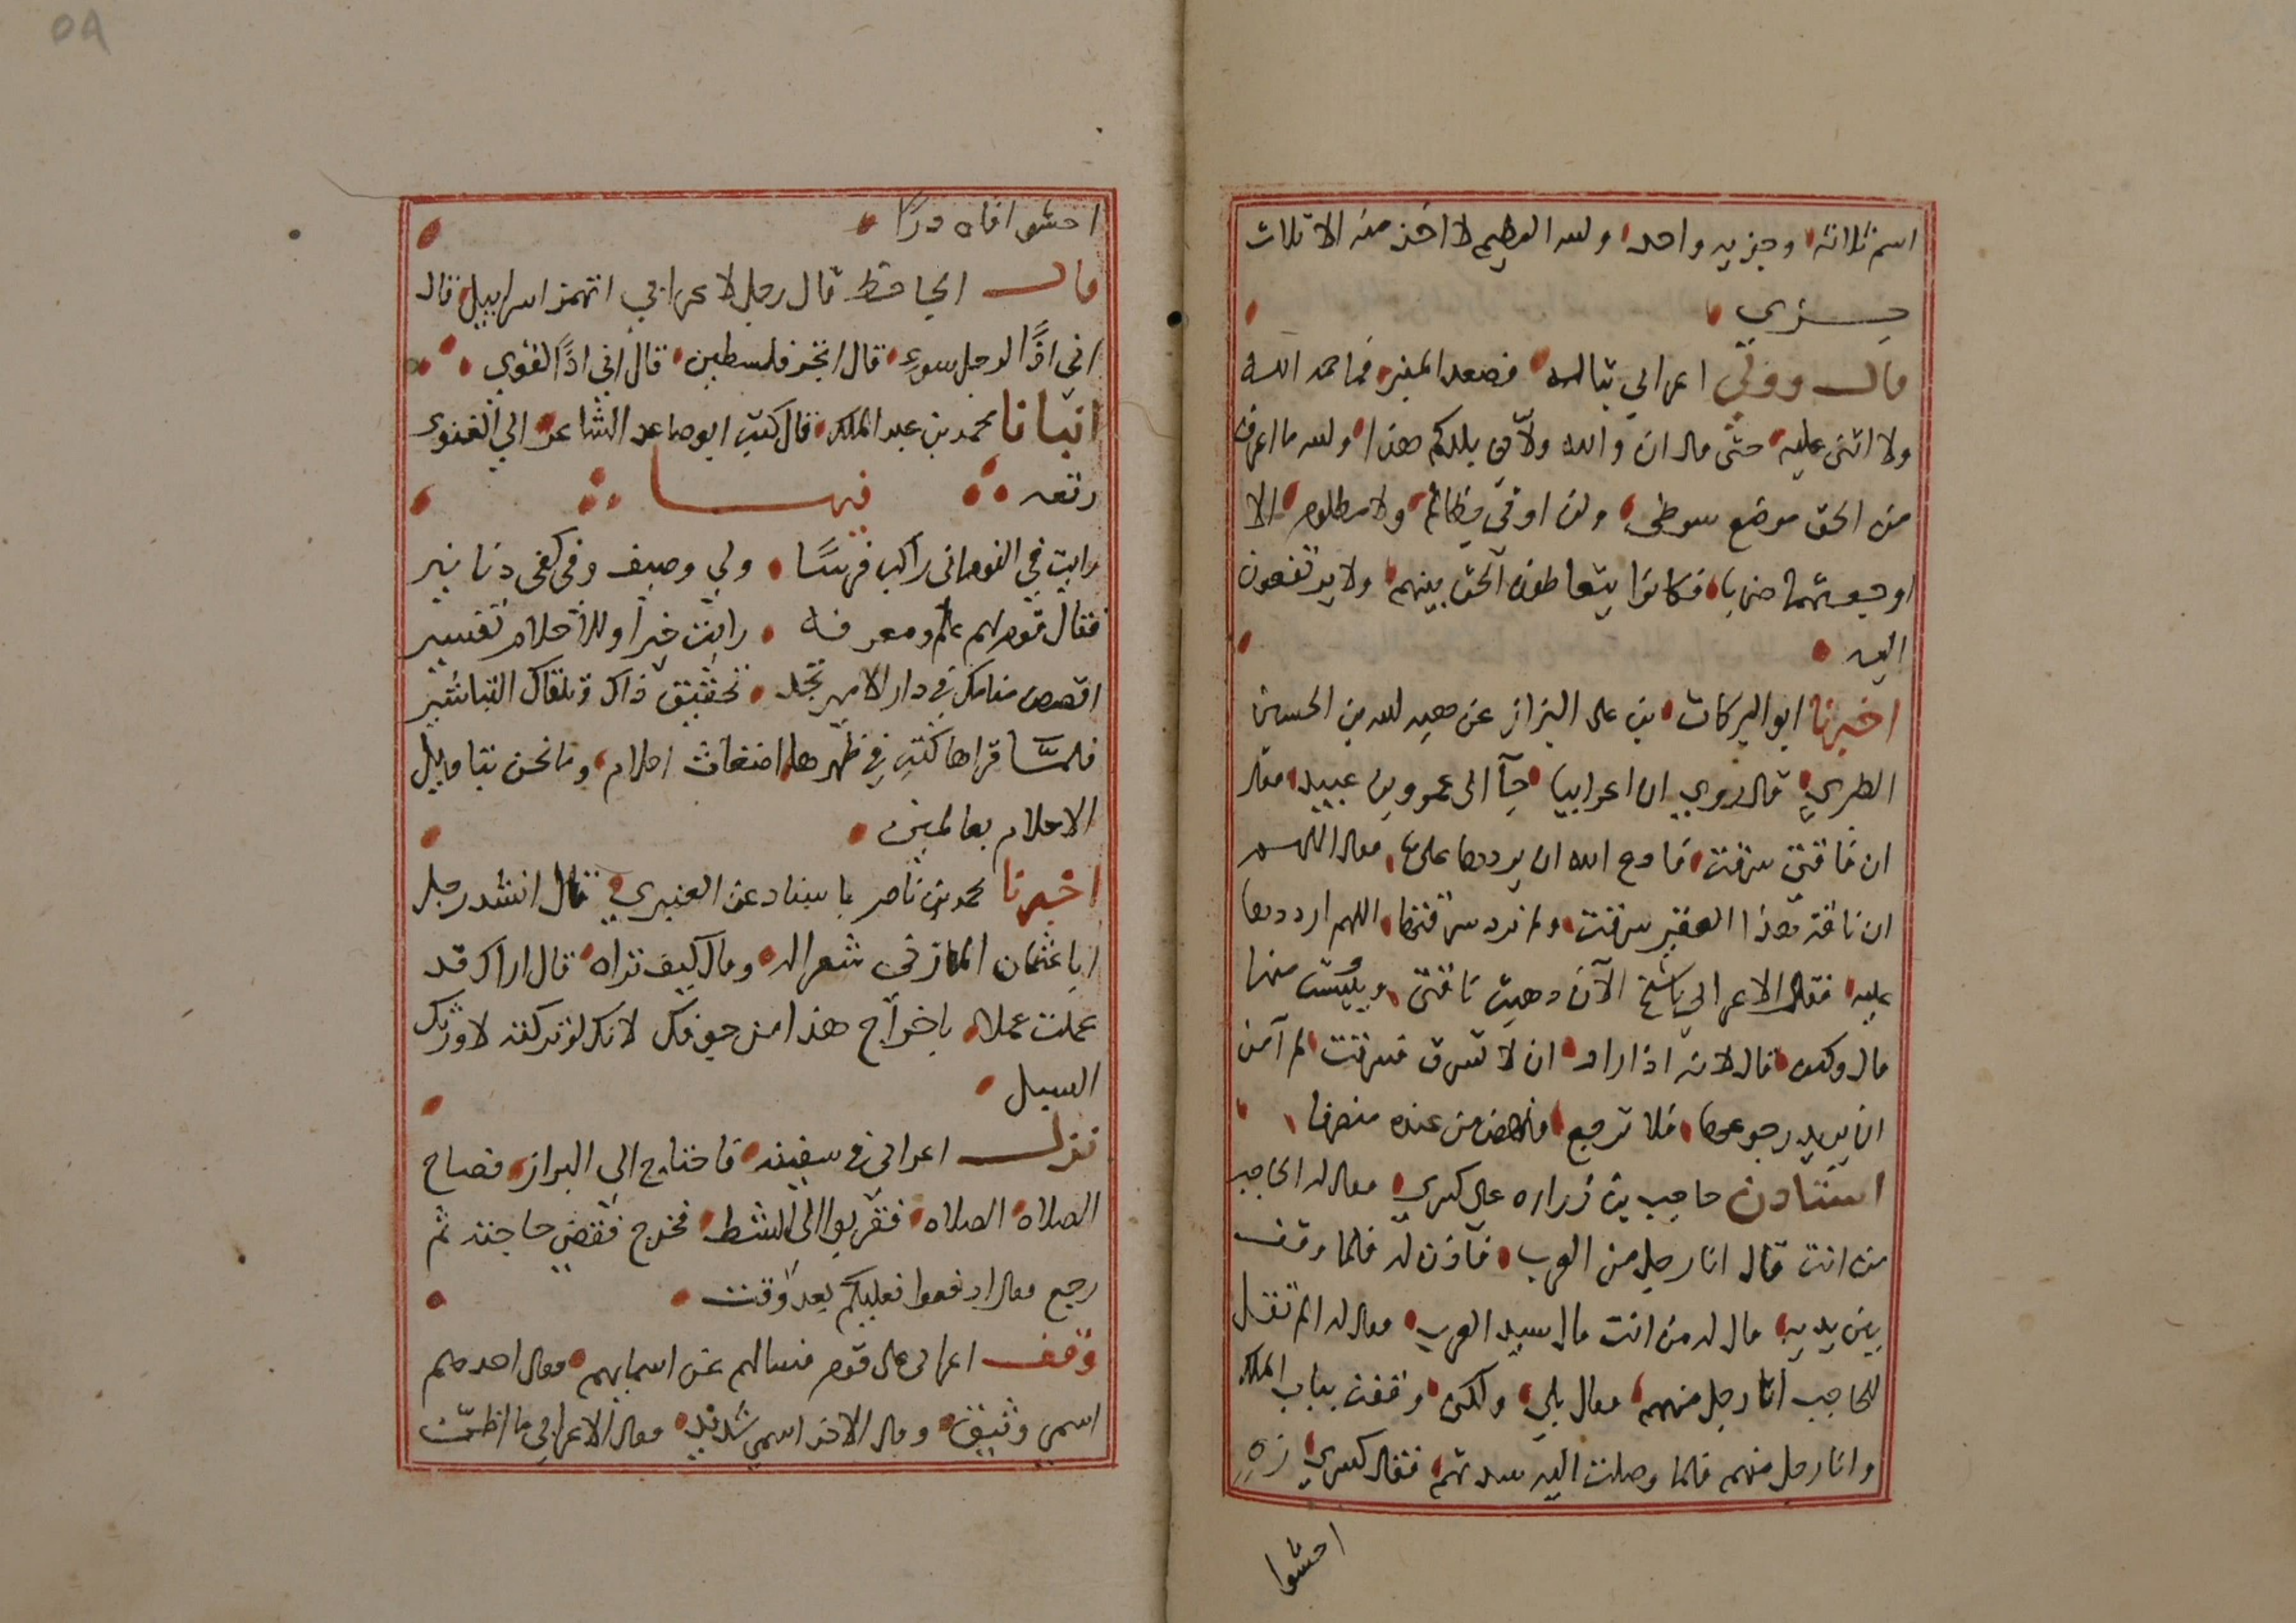 اسم ثلاثه وجزيه واحد ولله العظيم لا اخذ منه الا ثلاث
جزي
قال وولي اعرابي تباله فصعد المنبر فما حمد الله
ولا اثنى عليه حتى قال ان والله ولاني بلدكم هذا ولله ما اعرف
من الحق موضع سوطي ولن اوتي بظالم ولا مظلوم الا
اوجعتهما ضربا فكانوا يتعاطون الحق بينهم ولا يرتفعون
اليه
اخبرنا ابو البركات بن على البزاز عن هبه لله بن الحسين
الطبري قال روي ان اعرابيا جآ الى عمرو بن عبيد فقال
ان ناقتي سرقت فادع الله ان يرددها على فقال اللهم
ان ناقة هذا الفقير سرقت ولم ترد سرقتها اللهم ارددها
عليه فقال الاعرابي يا شيخ الآن ذهبت ناقتي ويئست منها
قال وكيف قال لانه اذا اراد ان لا تسرق فسرقت لم آمن
ان يريد رجوعها فلا ترجع فنهض من عنده منصرفا
استاذن حاجب بن زراره على كسري فقال له الحاجب
من انت قال انا رجل من العرب فاذن له فلما وقف
بين يديه قال له من انت قال سيد العرب فقال له الم تقل
للحاجب انا رجل منهم فقال بلي ولكن وقفت بباب الملك
وانا رجل منهم فلما وصلت اليه سدتهم فقال كسري زه
احشوا
احشوا فاه درا
قال الجاحظ قال رجل لاعرابي اتهمز اسرايل قال
اني اذًا لرجل سوء قال اتجر فلسطين قال اني اذًا لقوي
انبانا محمد بن عبد الملك قال كتب ابو صاعد الشاعر الي الغنوي
رقعه فيها
رايت في النوم اني راكب فرسًا ولي وصيف وفي كفي دنانير
فقال قوم لهم علم ومعرفه رايت خيرا وللاحلام تفسير
اقصص منامك في دار الامير تجد تحقيق ذاك وتلقاك التباشير
فلمّا قراها كتب في ظهرها اضغاث احلام وما نحن بتاويل
الاحلام بعالمين
اخبرنا محمد بن ناصر باسناد عن العنبري قال انشد رجل
ابا عثمان المازني شعرا له وقال كيف تراه قال اراك قد
عملت عملا باخراج هذا من جوفك لانك لو تركته لاورثك
السل
نزل اعرابي في سفينه فاحتاج الى البراز فصاح
الصلاه الصلاه فقربوا الى الشط فخرج فقضي حاجته ثم
رجع فقال ادفعوا فعليكم بعد وقت
وقف اعرابى على قوم فسالهم عن اسمايهم فقال احدهم
اسمي وثيق وقال الاخر اسمي شديد فقال الاعرابي ما اظنّ
٥٨